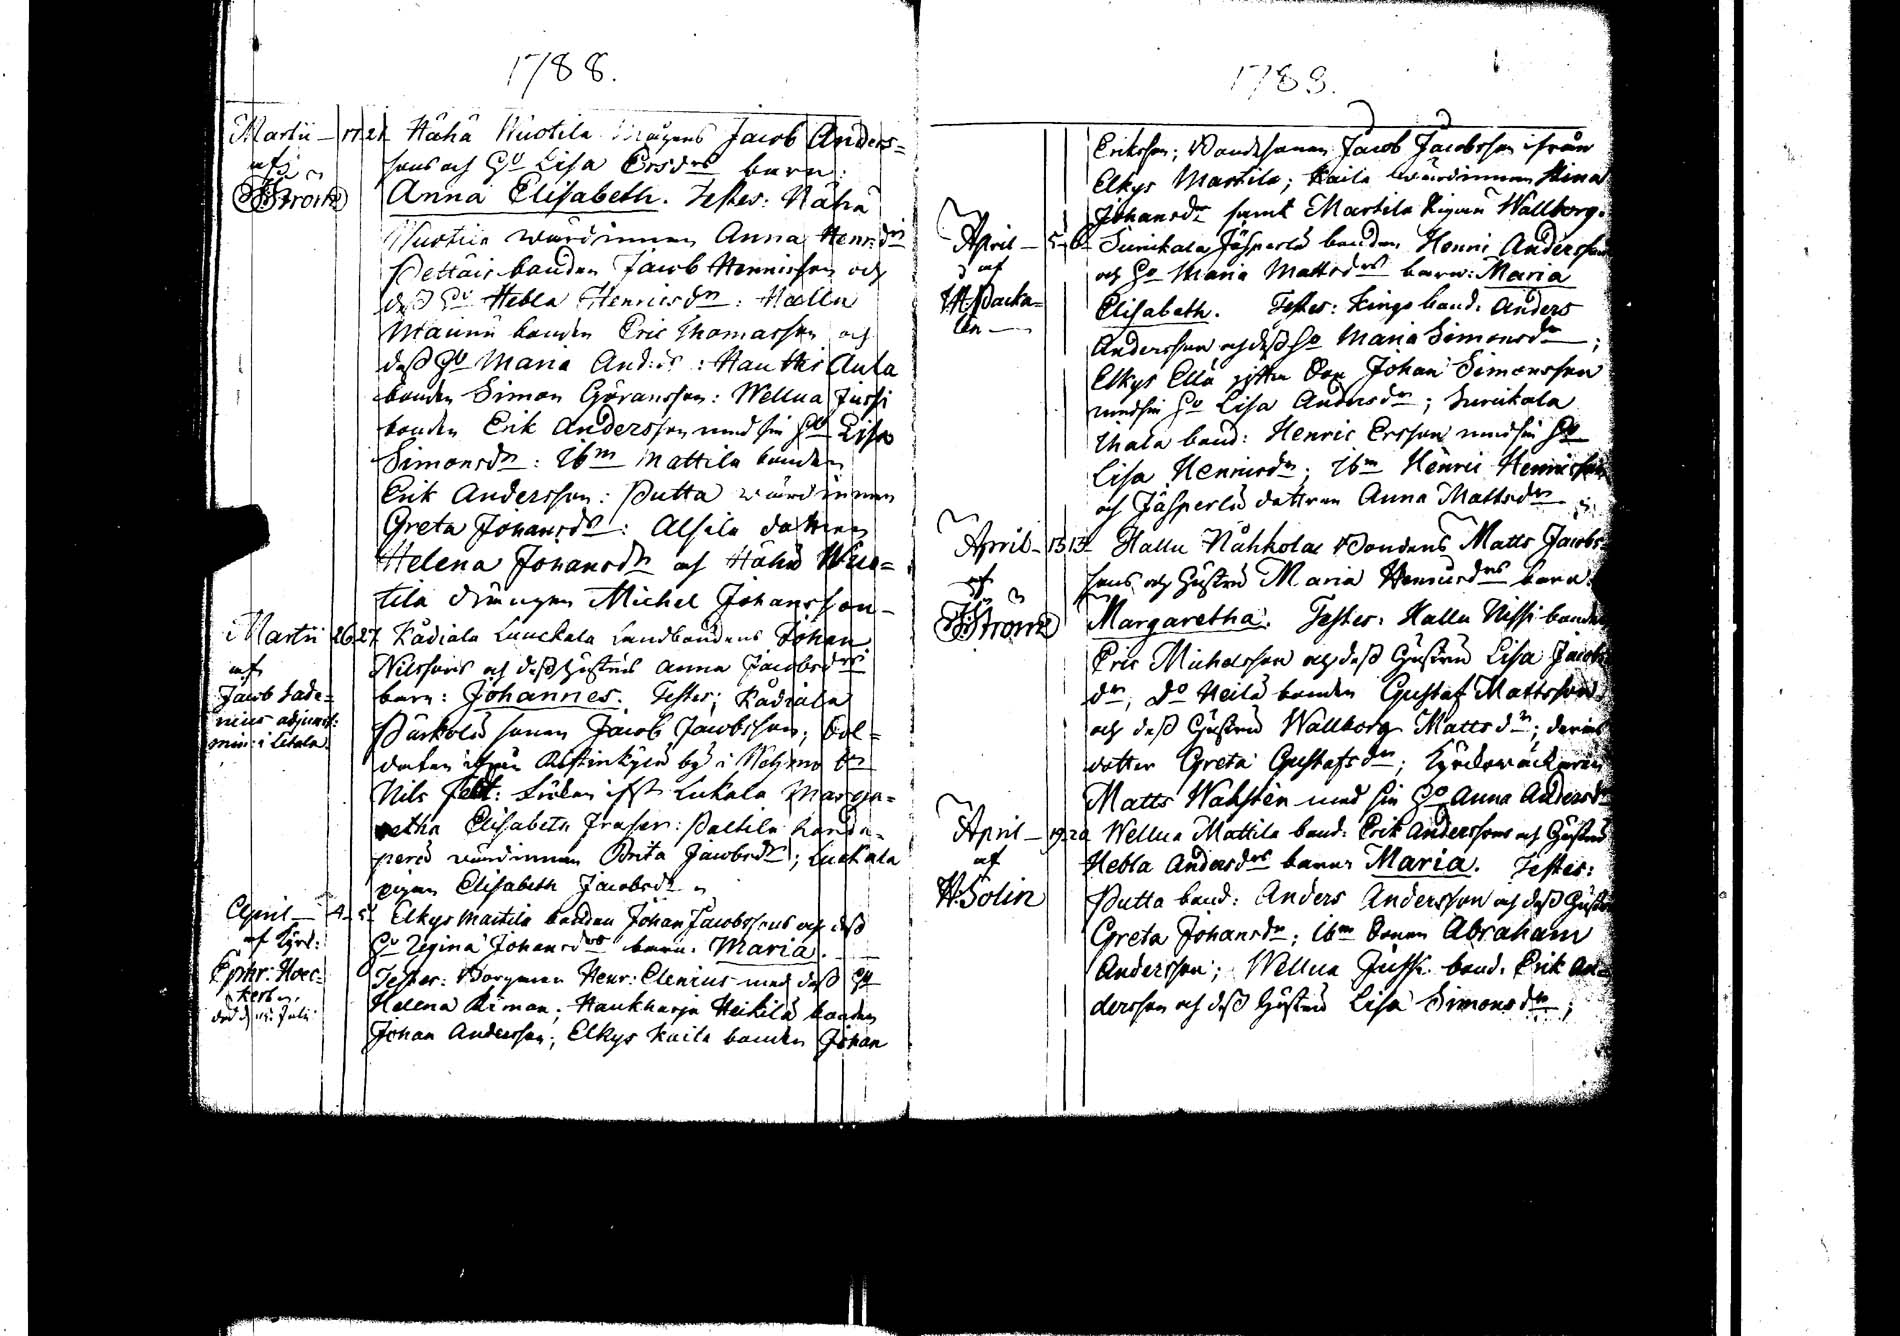 1788.
Martii - 17. 21. Nähä Wuotila Drängens Jacob Anders=
af sons och H:u Lisa Ersd:rs barn:
Ström Anna Elisabeth. Testes: Nähä
Wuotila wärdinnan Anna Henrd:r
bonden Jacob Henricsson och
dess H:u Hebla Henricsd:r: Hallu
Maunu bonden Eric Thomasson och
dess H:u Maria And: : Hauthis Aula
bonden Simon Göransson: Wellua Jussi
bonden Erik Andersson med sin H:u Lisa
Simonsd:r: Ib:m Mattila bonden
Erik Andersson: Putta wärdinnan
Greta Johansd:r: Alsila dottren
Helena Johansd:r och Nähä Wuo=
tila drängen Michel Johansson -
Martii 26. 27. Kådiala Luuckala Landbondens Johan
af Nilssons och dess hustrus Anna Jacobsd:rs
Jacob Lade= barn: Johannes. Testes; Kådiala
nius adjunct: sonen Jacob Jacobsson; Sol=
min: i Letala daten ifrån by i Wehmo S:n
Nils Felt: ifr: Lukala Marga=
retha Elisabeth Fraser: Paltila
wärdinnan Brita Jacobsd:r; Luckala
pigan Elisabeth Jacobsd:r
April - 4. 5. Elkys Martila bonden Johan Jacobssons och dess
af H:u Regina Johansd:rs barn: Maria.
Testes: Henr: Clenius med dess H:u
Helena Riman; Haukharja Heikilä bonden
Johan Andersson; Elkys Kaila bonden Johan
d: Julii
1788.
Eriksson; Bondesonen Jacob Jacobsson ifrån
Elkys Martila; Kaila wärdinnan Stina
Johansd:r samt Martila Pigan Wallborg.
April - 5. 6. Surikala Jäsperlä bonden Henric Andersson
af och H:u Maria Mattsd:rs barn: Maria
Elisabeth. Testes: Kings bond: Anders
Andersson och dess H:u Maria Simonsd:r;
Elkys Ella gifta Son Johan Simonsson
med sin H:u Lisa Andersd:r; Surikala
bond: Henric Ersson med sin H:u
Lisa Henricsd:r; Ib:m Henric Henricsson
och Jäsperlä dottren Anna Mattsd:r
April - 13. 13. Hallu Nåhkola Bondens Matts Jacobs=
af sons och hustru Maria Henricsd:rs barn:
Ström Margaretha. Testes: Hallu Nissi bonden
Eric Michelsson och dess hustru Lisa Jacobs
d:r, D:o Heilä bonden Gustaf Mattsson
och dess hustru Wallborg Mattsd:r; deras
dotter Greta Gustafsd:r;
Matts Wahsten med sin H:u Anna Andersd:r
April - 19. 20. Wellua Mattila bond: Erik Anderssons och hustru
af Hebla Andersd:rs barn: Maria. Testes:
H: Solin Putta bond: Anders Andersson och dess hustru
Greta Johansd:r; Ib:m Sonen Abraham
Andersson; Wellua Jussi bond: Erik An=
dersson och dess hustru Lisa Simonsd:r;